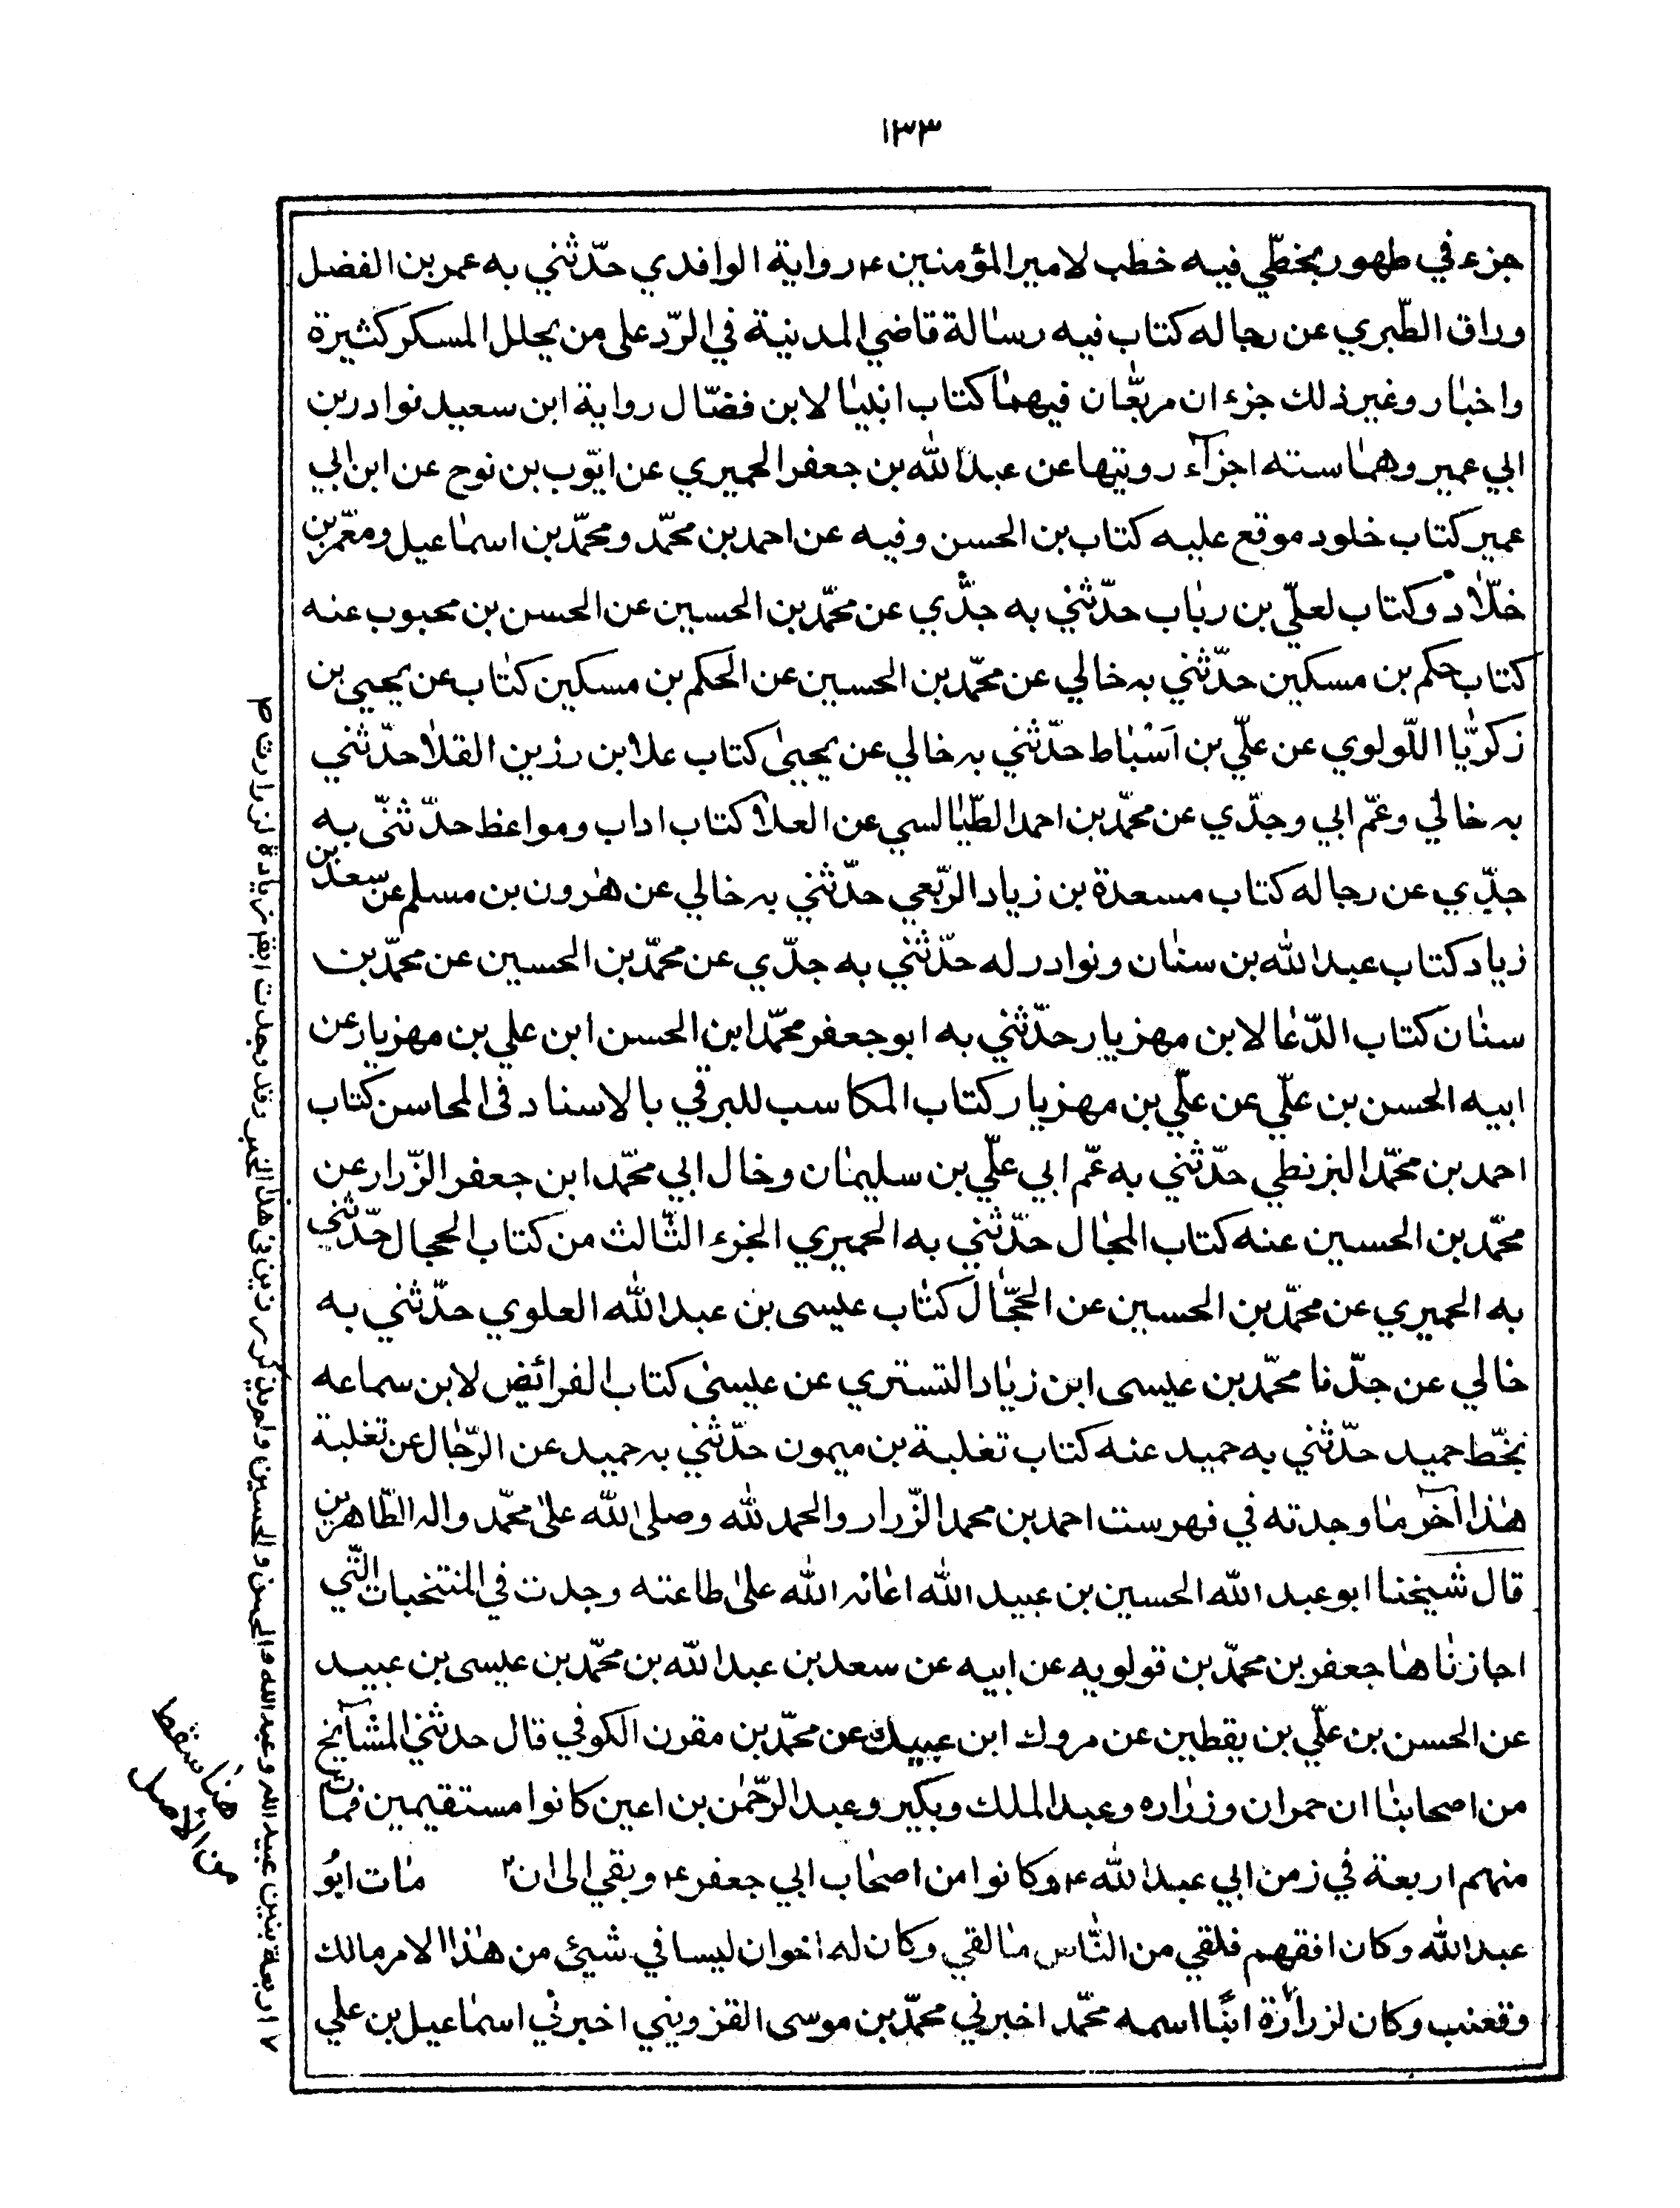 ١٣٣
جزء في طهور بخطّي فيه خطب لامير المؤمنين ع رواية الوافدي حدّثني به عمر بن الفضل
وراق الطّبري عن رجاله كتاب فيه رسالة قاضي المدنية في الرّد على من يحلل المسكر كثيرة
واخبار وغير ذلك جزء ان مربّعان فيهما كتاب انبيا لابن فضّال رواية ابن سعيد نوادر بن
ابي عمير وهما سته اجزآء رويتها عن عبد الله بن جعفر الحميري عن ايّوب بن نوح عن ابن ابي
عمير كتاب خلود موقع عليه كتاب بن الحسن وفيه عن احمد بن محمّد ومحمّد بن اسماعيل ومعمّر بن
خلّاد وكتاب لعلّي بن رباب حدّثني به جدّي عن محمّد بن الحسين عن الحسن بن محبوب عنه
كتاب حكم بن مسكين حدّثني به خالي عن محمّد بن الحسين عن الحكم بن مسكين كتاب عن يحيى بن
زكريّا اللّولوي عن علّي بن اَسْباط حدّثني به خالي عن يحيىٰ كتاب علا ابن رزين القلا حدّثني
به خالي وعمّ ابي وجدّي عن محمّد بن احمد الطّيالسي عن العلا كتاب اداب ومواعظ حدّثنّى به
جدّي عن رجاله كتاب مسعدة بن زياد الرّبعي حدّثني به خالي عن هٰرون بن مسلم عن سعد بن
زياد كتاب عبد الله بن سنان ونوادر له حدّثني به جدّي عن محمّد بن الحسين عن محمّد بن
سنان كتاب الدّعا لابن مهزيار حدّثني به ابو جعفر محمّد ابن الحسن ابن علي بن مهزيار عن
ابيه الحسن بن علّي عن علّي بن مهزيار كتاب المكاسب للبرقي بالاسناد فى المحاسن كتاب
احمد بن محمّد البزنطي حدّثني به عّم ابي علّي بن سليمان وخال ابي محمّد ابن جعفر الزّرار عن
محمّد بن الحسين عنه كتاب المجال حدّثني به الحميري الجزء الثّالث من كتاب الحجال حدّثني
به الحميري عن محمّد بن الحسين عن الحجّال كتاب عيسى بن عبد الله العلوي حدّثني به
خالي عن جدّنا محمّد بن عيسى ابن زياد التستري عن عيسىٰ كتاب الفرائض لابن سماعه
بخّط حميد حدّثني به حميد عنه كتاب تغلبة بن ميمون حدّثني به حميد عن الرّجال عن تغلبة
هٰذا آخر ما وجدته في فهرست احمد بن محمد الزّرار والحمد لله وصلى الله علىٰ محمّد واله الطّاهرين
قال شيخنا ابو عبد الله الحسين بن عبيد الله اعانه الله علىٰ طاعته وجدت في المنتخبات الّتي
اجازناها جعفر بن محمّد بن قولويه عن ابيه عن سعد بن عبد الله بن محمّد بن عيسى بن عبيد
عن الحسن بن علّي بن يقطين عن مروك ابن عبيد عن محمّد بن مقرن الكوفي قال حدثني المشآيخ
من اصحابنا ان حمران وزراره وعبد الملك وبكير وعبد الرّحمٰن بن اعين كانوا مستقيمين فمات
منهم اربعة في زمن ابي عبد الله ع وكانوا من اصحاب ابي جعفر ع وبقي الى ان٢ مات ابُو
عبد الله وكان افقههم فلقي من النّاس ما لقي وكان له اخوان ليسا في شيئ من هٰذا الامر مالك
وقعنب وكان لزرارة ابنًا اسمه محمّد اخبرني محمّد بن موسى القزويني اخبرني اسماعيل بن علي
٧ اربعة بنين عبيد الله وعبد الله والحسن والحسين ولم يذكر رزين في هذا الخبر وقد وجدت ابقم زيادة لزرارت م
هنا سقط
من الاصل